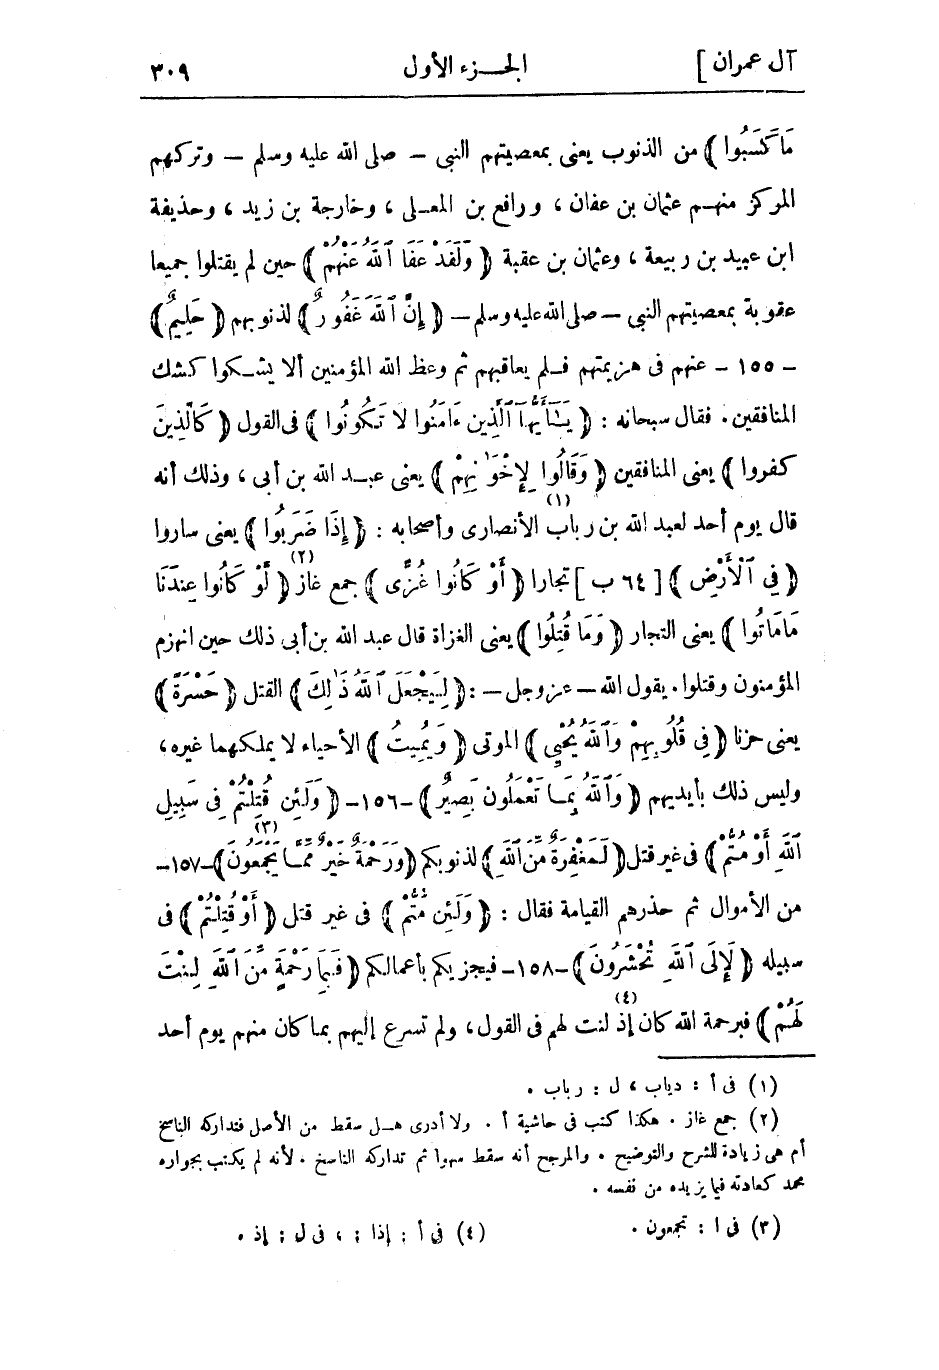 آل عمران ] الجـزء الأول ٣٠٩
مَا كَسَبُوا ﴾ من الذنوب يعنى بمعصيتهم النبى – صلى الله عليه وسلم – وتركهم
المركز منهـم عثمان بن عفان ، ورافع بن المعـلى ، وخارجة بن زيد ، وحذيفة
ابن عبيد بن ربيعة ، وعثمان بن عقبة ﴿ وَلَقَدْ عَفَا ٱللَّهُ عَنْهُمْ ﴾ حين لم يقتلوا جميعا
عقوبة بمعصيتهم النبى – صلى الله عليه وسلم – ﴿ إِنَّ ٱللَّهَ غَفُورٌ ﴾ لذنوبهم ﴿ حَلِيمٌ ﴾
– ١٥٥ – عنهم فى هزيمتهم فـلم يعاقبهم ثم وعظ الله المؤمنين ألا يشـكوا كشك
المنافقين . فقال سبحانه : ﴿ يَـٰٓأَيُّهَا ٱلَّذِينَ ءَامَنُوا لَا تَكُونُوا ﴾ فى القول ﴿ كَٱلَّذِينَ
كفروا ﴾ يعنى المنافقين ﴿ وَقَالُوا لِإِخْوَٰنِهِمْ ﴾ يعنى عبـد الله بن أبى ، وذلك أنه
قال يوم أحد لعبد الله بن رباب (١) الأنصارى وأصحابه : ﴿ إِذَا ضَرَبُوا ﴾ يعنى ساروا
﴿ فِى ٱلْأَرْضِ ﴾ [ ٦٤ ب ] تجارا ﴿ أَوْ كَانُوا غُزًّى ﴾ جمع غاز (٢) ﴿ لَّوْ كَانُوا عِندَنَا
مَا مَاتُوا ﴾ يعنى التجار ﴿ وَمَا قُتِلُوا ﴾ يعنى الغزاة قال عبد الله بن أبى ذلك حين انهزم
المؤمنون وقتلوا . يقول الله – عز وجل – : ﴿ لِيَجْعَلَ ٱللَّهُ ذَٰلِكَ ﴾ القتل ﴿ حَسْرَةً ﴾
يعنى حزنا ﴿ فِى قُلُوبِهِمْ وَٱللَّهُ يُحْيِى ﴾ الموتى ﴿ وَيُمِيتُ ﴾ الأحياء لا يملكهما غيره ،
وليس ذلك بأيديهم ﴿ وَٱللَّهُ بِمَـا تَعْمَلُونَ بَصِيرٌ ﴾ –١٥٦– ﴿ وَلَئِن قُتِلْتُمْ فِى سَبِيلِ
ٱللَّهِ أَوْ مُتُّمْ ﴾ فى غير قتل ﴿ لَمَغْفِرَةٌ مِّنَ ٱللَّهِ ﴾ لذنوبكم ﴿ وَرَحْمَةٌ خَيْرٌ مِّمَّا يَجْمَعُونَ (٣) ﴾ –١٥٧–
من الأموال ثم حذرهم القيامة فقال : ﴿ وَلَئِن مُّتُّمْ ﴾ فى غير قتل ﴿ أَوْ قُتِلْتُمْ ﴾ فى
سبيله ﴿ لَإِلَى ٱللَّهِ تُحْشَرُونَ ﴾ –١٥٨– فيجزيكم بأعمالكم ﴿ فَبِمَا رَحْمَةٍ مِّنَ ٱللَّهِ لِنتَ
لَهُمْ ﴾ فبرحمة الله كان إذ (٤) لنت لهم فى القول ، ولم تسرع إليهم بمـا كان منهم يوم أحد
(١) فى أ : دياب ، ل : رباب .
(٢) جمع غاز . هكذا كتب فى حاشية أ . ولا أدرى هـل سقط من الأصل فتداركه الناسخ
أم هى زيادة للشرح والتوضيح . والمرجح أنه سقط سهوا ثم تداركه الناسخ . لأنه لم يكتب بجواره
محمد كعادته فيما يزيده من نفسه .
(٣) فى ا : تجمعون . (٤) فى أ : إذا ; ، فى ل : إذ .